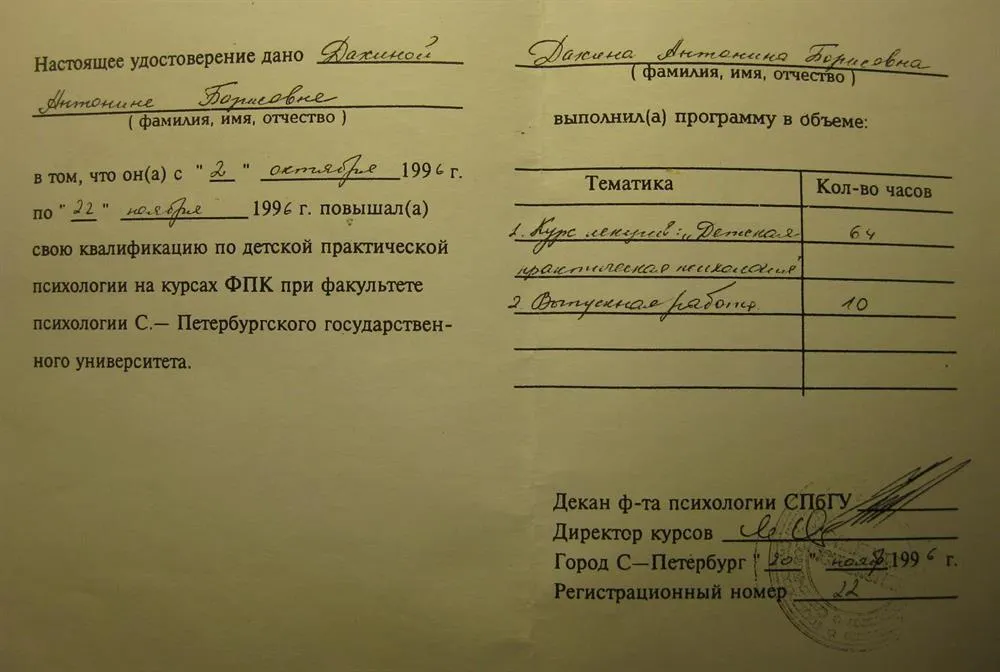 Настоящее удостоверение дано Дакиной
Антонине Борисовне
( фамилия, имя, отчество )
в том, что он(а) с " 2 " октября 1996 г.
по " 22 " ноября 1996 г. повышал(а)
свою квалификацию по детской практической
психологии на курсах ФПК при факультете
психологии С.— Петербургского государствен-
ного университета.
Дакина Антонина Борисовна
( фамилия, имя, отчество )
выполнил(а) программу в объеме:
Тематика Кол-во часов
1. Курс лекций: „Детская 64
практическая психология"
2. Выпускная работа. 10
Декан ф-та психологии СПбГУ
Директор курсов
Город С—Петербург " 20 " нояб 1996 г.
Регистрационный номер 22